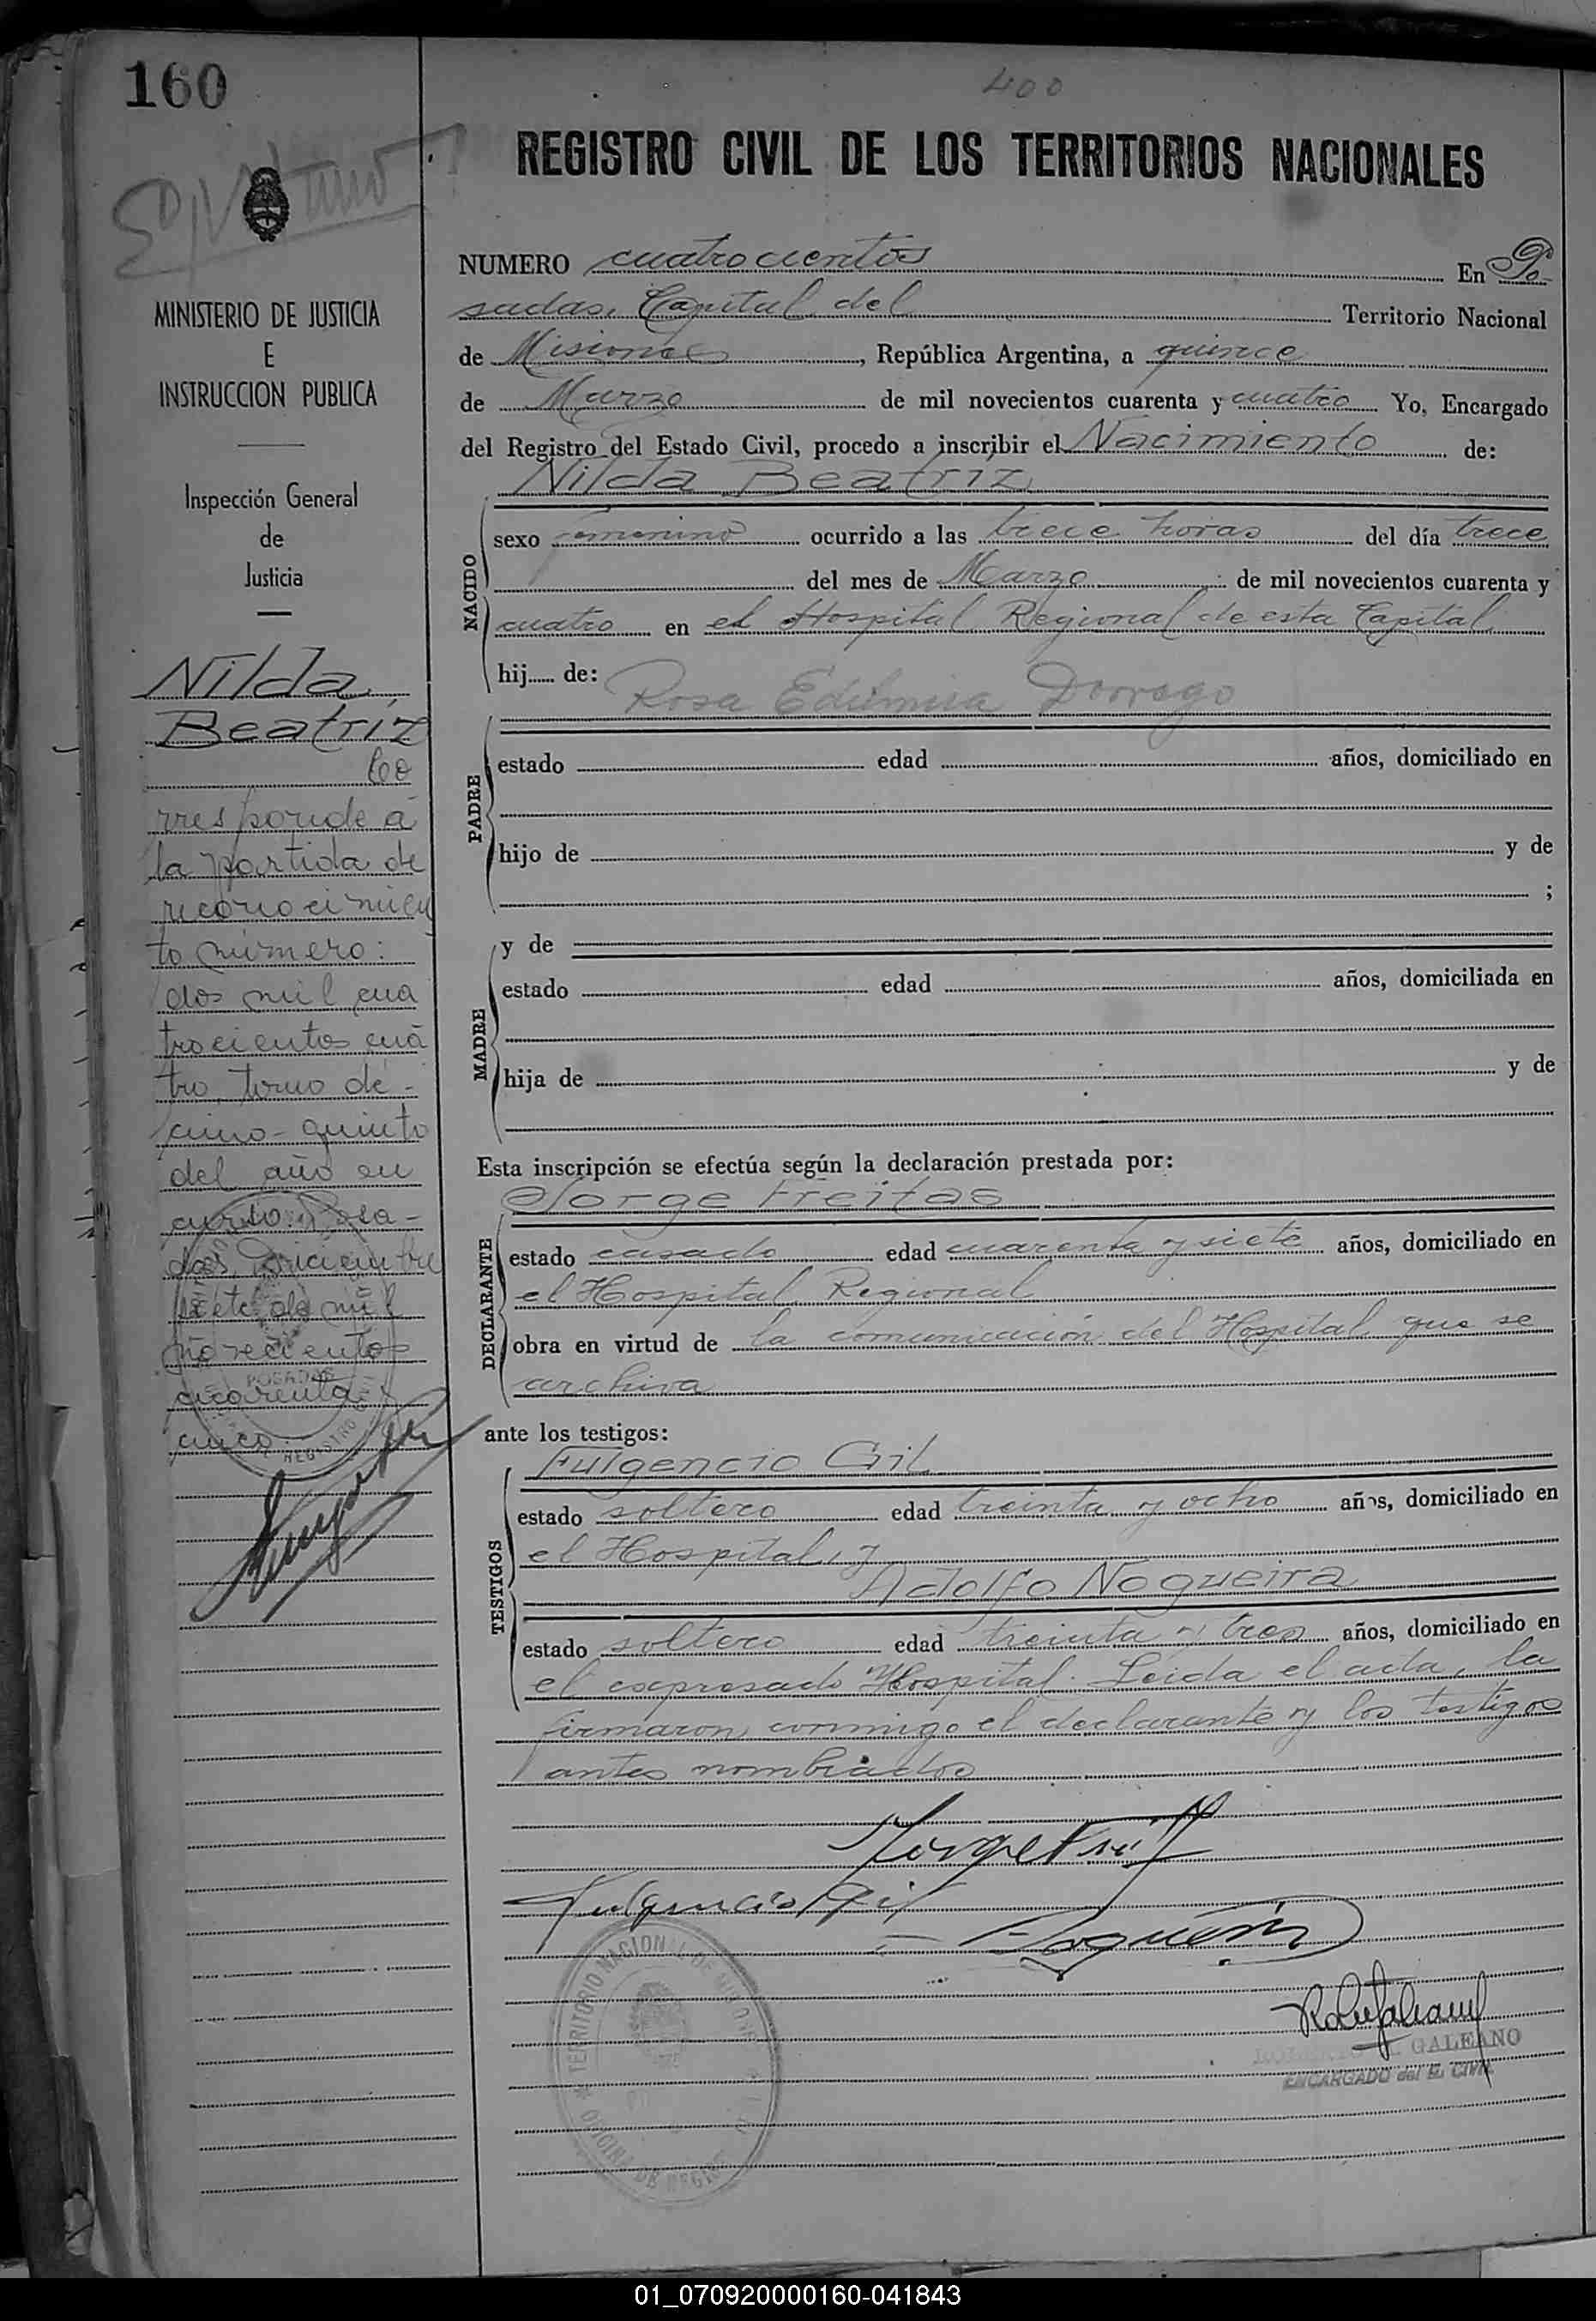 160
400
REGISTRO CIVIL DE LOS TERRITORIOS NACIONALES
MINISTERIO DE JUSTICIA
E
INSTRUCCION PUBLICA
Inspección General
de
Justicia
Nilda
Beatriz
Co
rresponde á
la partida de
reconocimien
to número:
dos mil cua
trocientos cuá
tro, tomo dé-
cimo-quinto
del año en
curso. Posa-
das, Diciembre
siete de mil
novecientos
cuarenta y
cinco.
POSADAS
REGISTRO
NUMERO cuatrocientos En Po
sadas, Capital del Territorio Nacional
de Misiones, República Argentina, a quince
de Marzo de mil novecientos cuarenta y cuatro Yo, Encargado
del Registro del Estado Civil, procedo a inscribir el Nacimiento de:
Nilda Beatriz
NACIDO
sexo femenino ocurrido a las trece horas del día trece
del mes de Marzo de mil novecientos cuarenta y
cuatro en el Hospital Regional de esta Capital
hij..... de:
Rosa Edelmira Dorrego
PADRE
estado edad años, domiciliado en
hijo de y de
;
MADRE
y de
estado edad años, domiciliada en
hija de y de
Esta inscripción se efectúa según la declaración prestada por:
Jorge Freitas
DECLARANTE
estado casado edad cuarenta y siete años, domiciliado en
el Hospital Regional
obra en virtud de la comunicación del Hospital que se
archiva
ante los testigos:
Fulgencio Gil
TESTIGOS
estado soltero edad treinta y ocho años, domiciliado en
el Hospital, y
Adolfo Nogueira
estado soltero edad treinta y tres años, domiciliado en
el expresado Hospital. Leída el acta, la
firmaron conmigo el declarante y los testigos
antes nombrados
Fulgencio Gil
TERRITORIO NACIONAL DE MISIONES
OFICINA DE REGIS
GALEANO
ENCARGADO del R. CIVIL
01_070920000160-041843